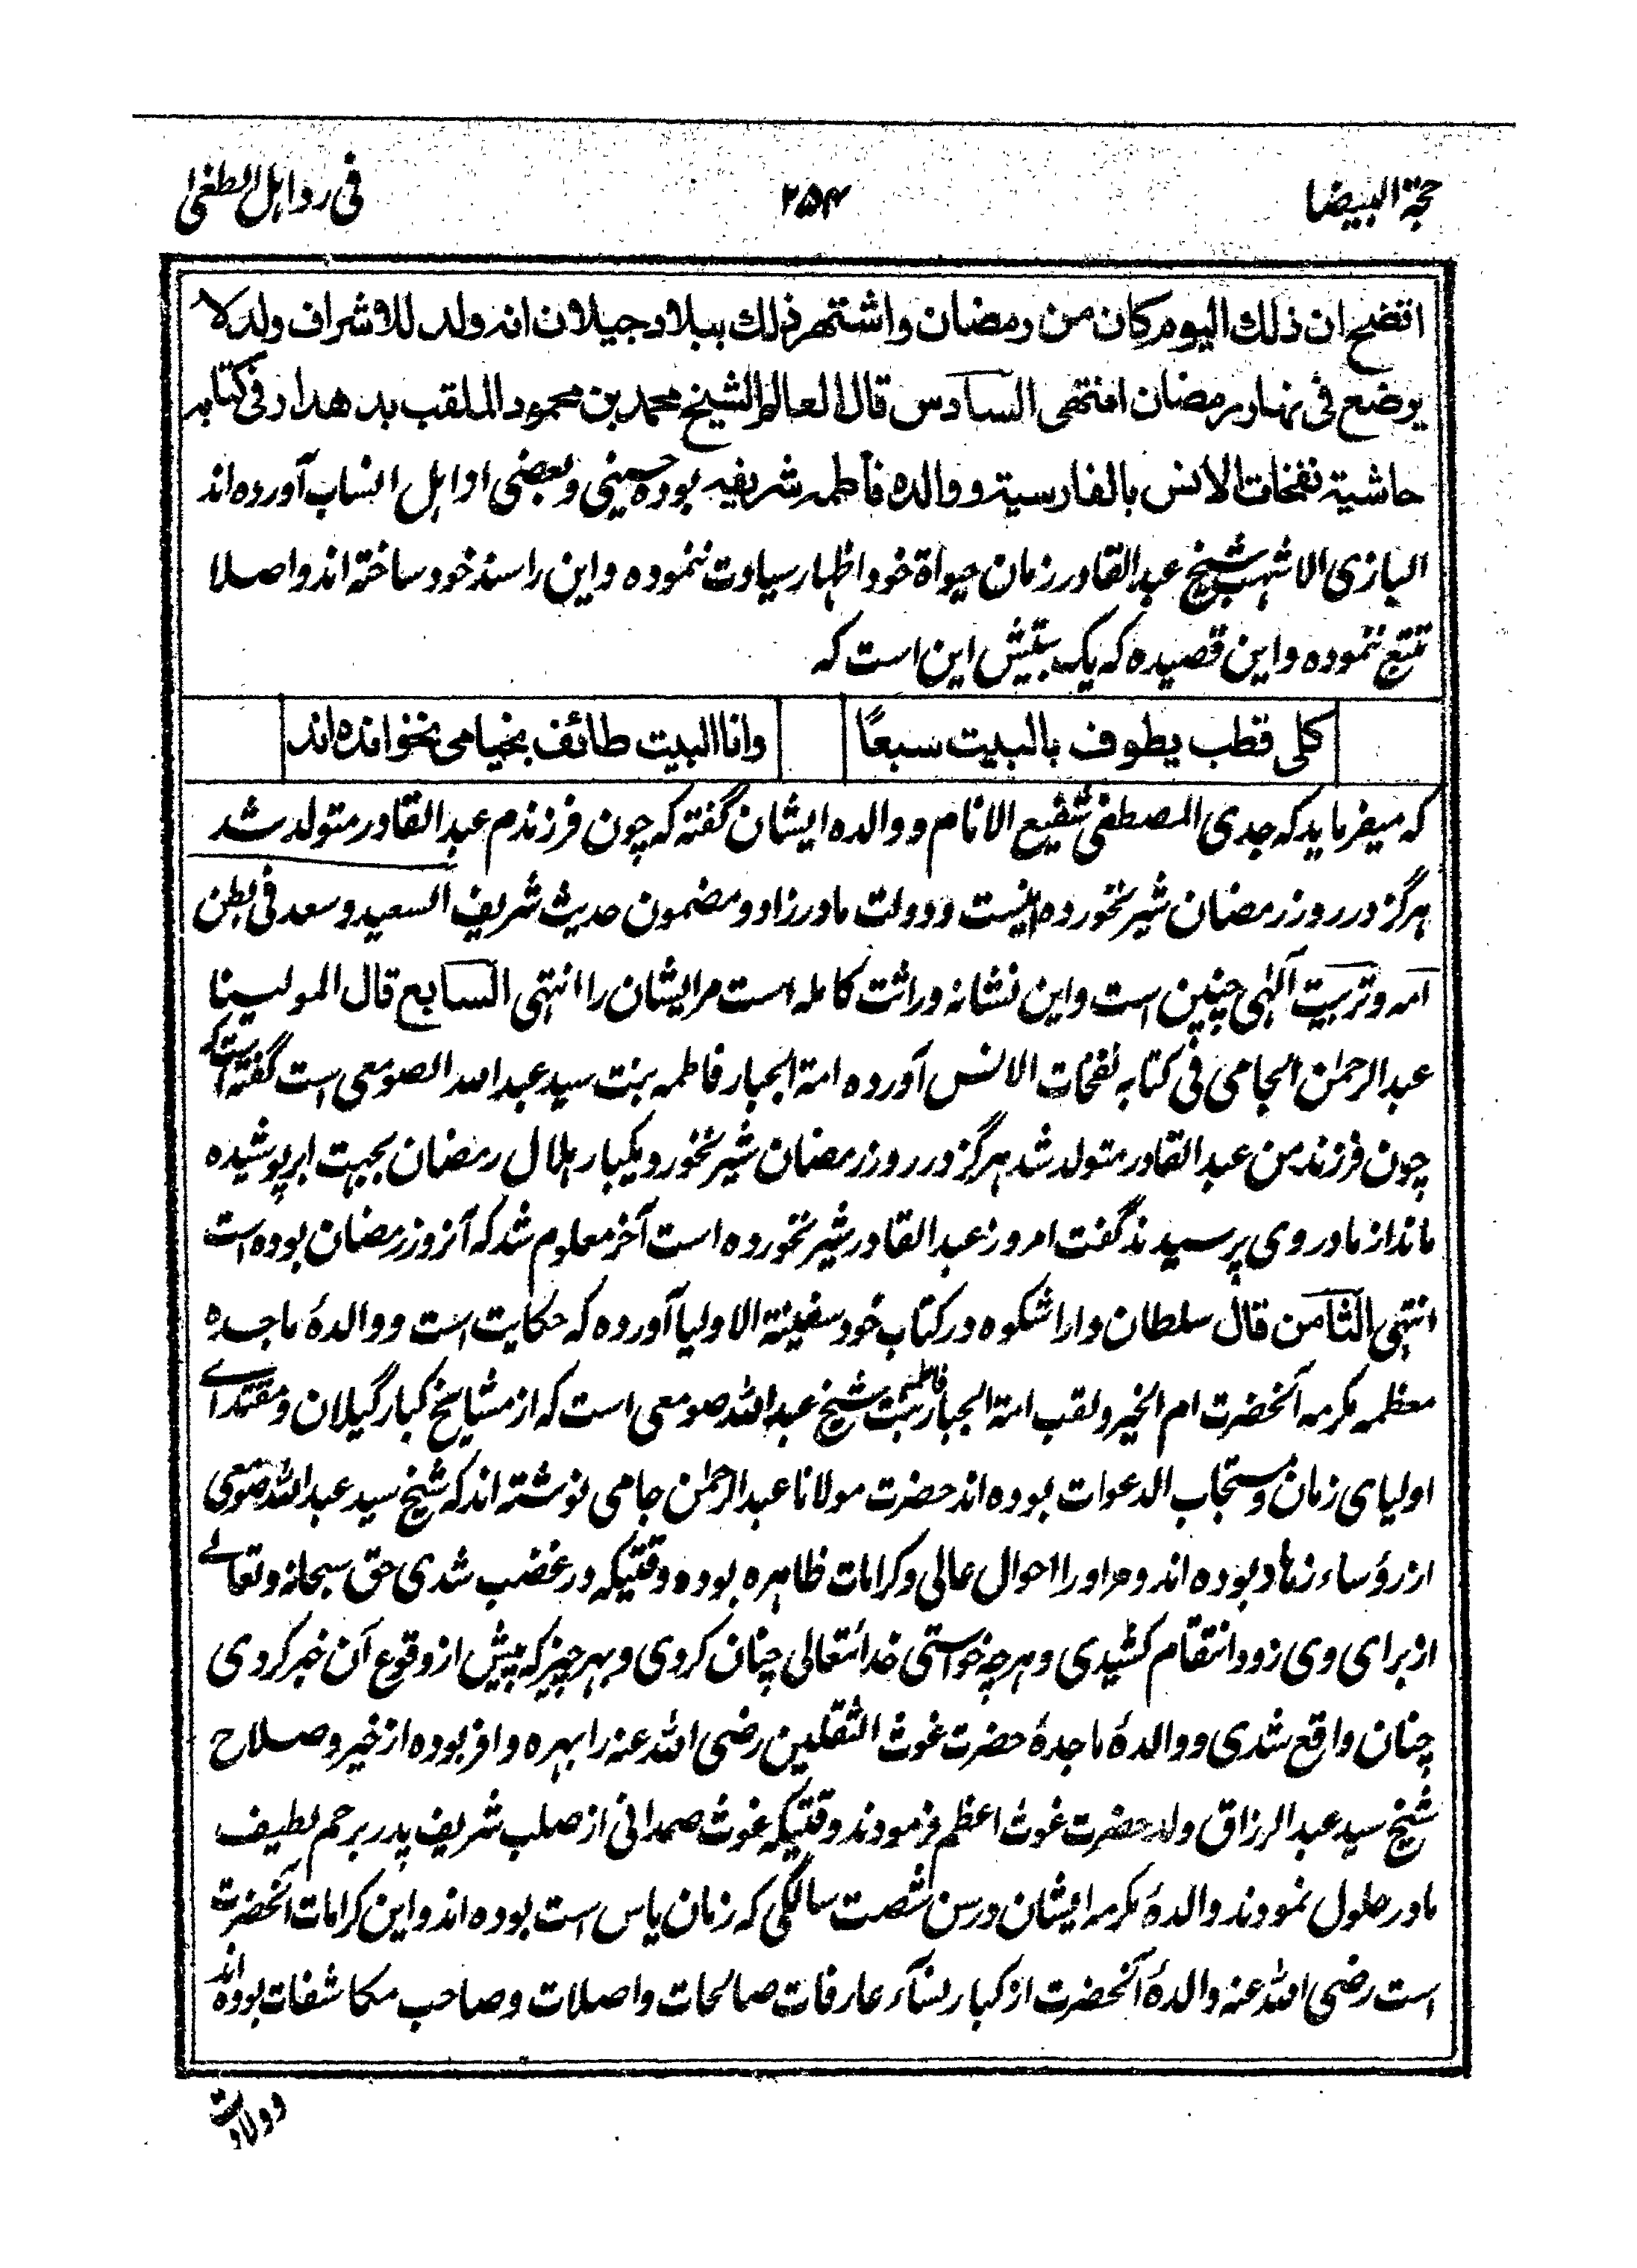 حجة البيضا ۲۵۴ فی رد اہل الطغی
اتضح ان ذلك اليوم كان من رمضان واشتهر ذلك ببلاد جيلان انه ولد للاشراف ولد لا
يوضع فی نهار رمضان انتهی السادس قال العالم الشيخ محمد بن محمود الملقب بدهدار فی كتابه
حاشية نفحات الانس بالفارسية و والده فاطمه شريفه بوده حسينی و بعضی اوايل انساب آورده اند
البازی الاشهب شيخ عبدالقادر زمان حيواة خود اظهار سيادت ننموده و اين را سند خود ساخته اند و اصلا
تتبع ننموده و اين قصيده كه يک بيتش اين است كه
كلی قطب يطوف بالبيت سبعًا وانا البيت طائف بخيامی نخوانده اند
كه ميفرمايد كه جدی المصطفی شفيع الانام و والده ايشان گفته كه چون فرزندم عبدالقادر متولد شد
هرگز در روز رمضان شير نخورده نيست و دولت مادرزاد و مضمون حديث شريف السعيد و سعد فی بطن
امه و تربيت آلهی چنين است و اين نشانه وراثت كامله است مر ايشان را انتهی السابع قال المولينا
عبدالرحمٰن الجامی فی كتابه نفحات الانس آورده امة الجبار فاطمه بنت سيد عبدالله الصومعی است گفته است كه
چون فرزند من عبدالقادر متولد شد هرگز در روز رمضان شير نخورد و يكبار هلال رمضان بجهت ابر پوشيده
ماند از مادر وی پرسيدند گفت امروز عبدالقادر شير نخورده است آخر معلوم شد كه آنروز رمضان بوده است
انتهی الثامن قال سلطان داراشكوه در كتاب خود سفينة الاوليا آورده كه حكايت است و والدۀ ماجده
معظمه مكرمه آنحضرت ام الخير و لقب امة الجبار فاطمه بنت شيخ عبدالله صومعی است كه از مشايخ كبار گيلان و مقتدا ے
اوليای زمان و مستجاب الدعوات بوده اند حضرت مولانا عبدالرحمٰن جامی نوشته اند كه شيخ سيد عبدالله صومعی
از رؤساء زهاد بوده اند و مر او را احوال عالی و كرامات ظاهره بوده وقتيكه در غضب شدی حق سبحانه و تعالے
از برای وی زود انتقام كشيدی و هرچه خواستی خدائتعالی چنان كردی و بهر چيز كه پيش از وقوع آن خبر كردی
چنان واقع شدی و والدۀ ماجدۀ حضرت غوث الثقلين رضی الله عنه را بهره وافر بوده از خير و صلاح
شيخ سيد عبدالرزاق ولد حضرت غوث اعظم فرمودند وقتيكه غوث صمدانی از صلب شريف پدر برحم لطيف
مادر حلول نمودند والدۀ مكرمه ايشان در سن شصت سالگی كه زمان ياس است بوده اند و اين كرامات آنحضرت
است رضی الله عنه والدۀ آنحضرت از كبار نسآء عارفات صالحات واصلات و صاحب مكاشفات بوده اند
و ولادت